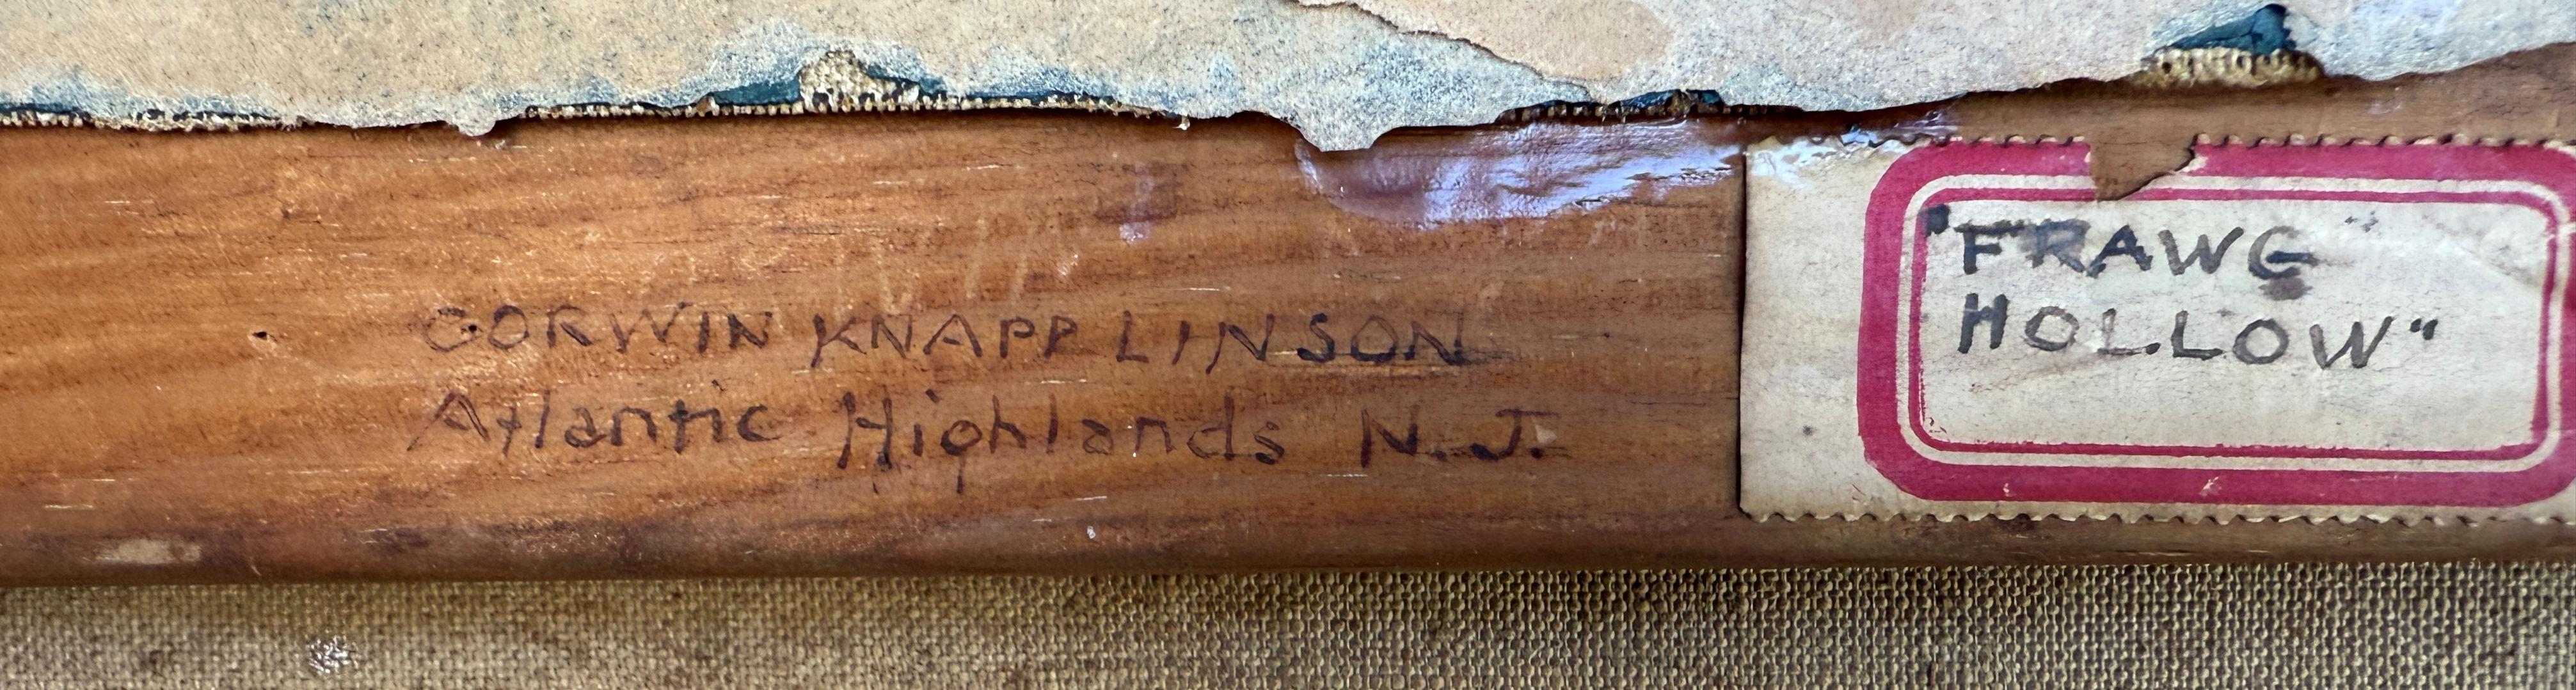 CORWIN KNAPP LINSON
Atlantic Highlands N.J.
"FRAWG"
HOLLOW"